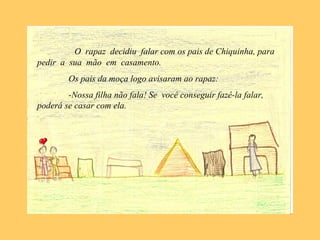 O rapaz decidiu falar com os pais de Chiquinha, para
pedir a sua mão em casamento.
Os pais da moça logo avisaram ao rapaz:
-Nossa filha não fala! Se você conseguir fazê-la falar,
poderá se casar com ela.